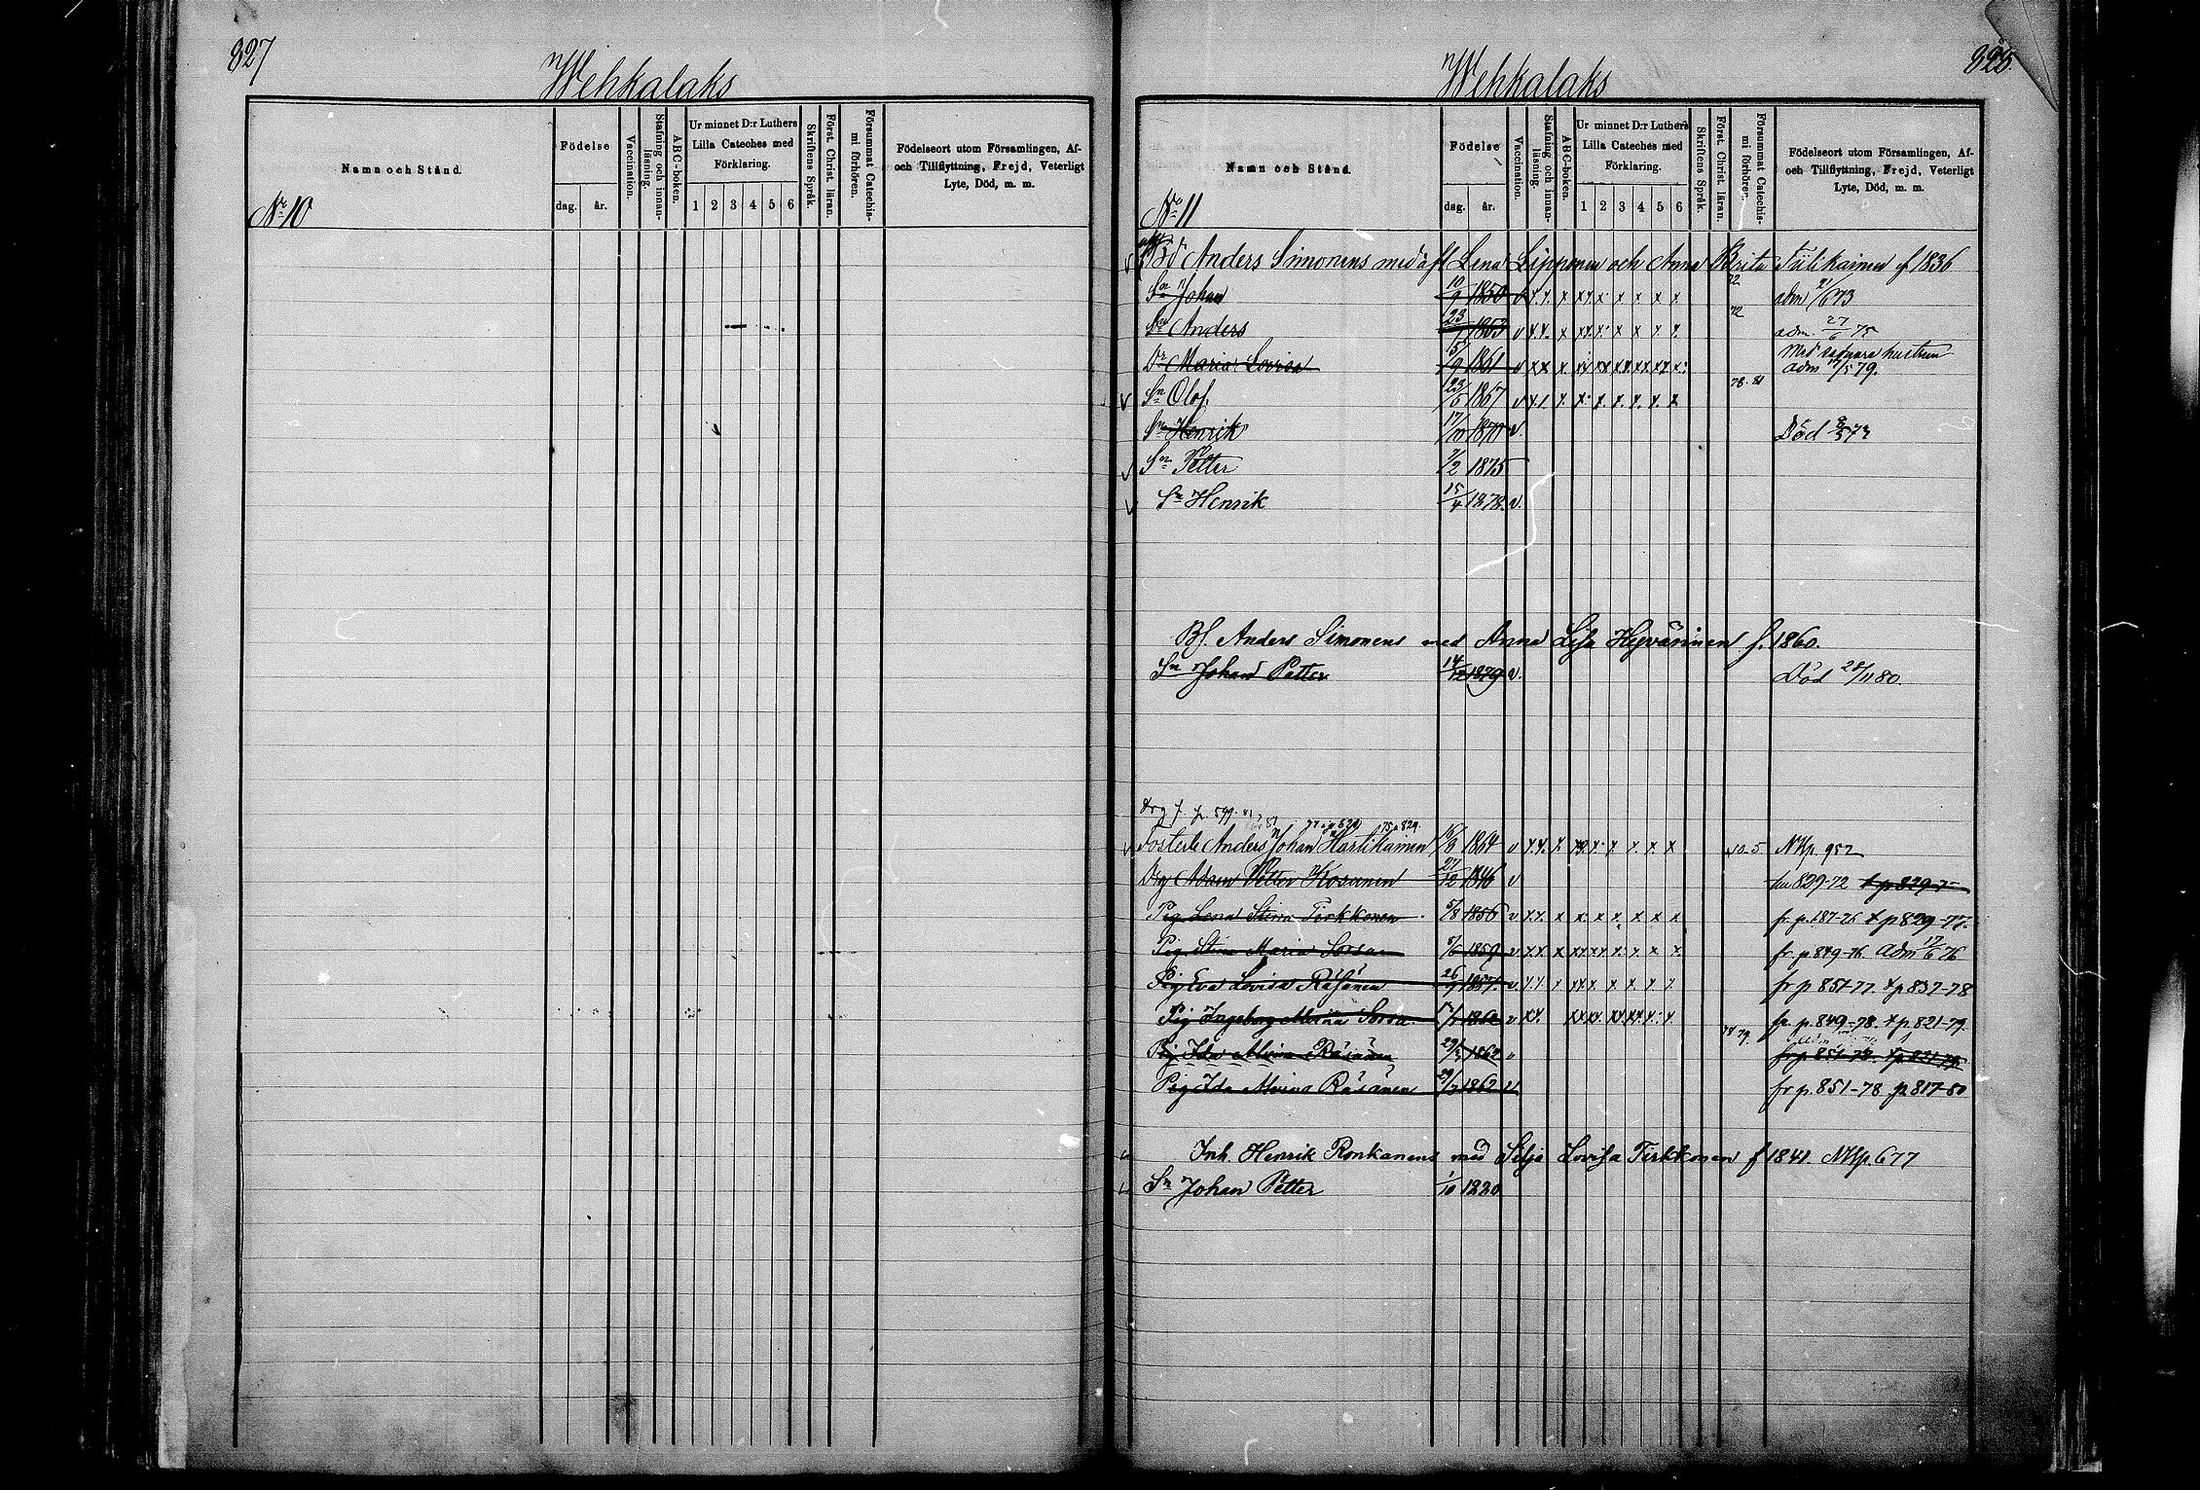 827
Wehkalaks
Namn och Stånd.
Födelse
dag. år.
Vaccination.
Stafning och innanläsning.
ABC-boken.
Ur minnet D:r Luthers Lilla Cateches med Förklaring.
1 2 3 4 5 6
Skriftens Språk.
Först. Christ. läran.
Försummat Catechismi förhören.
Födelseort utom Församlingen, Af- och Tillflyttning, Frejd, Veterligt Lyte, Död, m. m.
No 10
828
Wehkalaks
Namn och Stånd.
Födelse
dag. år.
Vaccination.
Stafning och innanläsning.
ABC-boken.
Ur minnet D:r Luthers Lilla Cateches med Förklaring.
1 2 3 4 5 6
Skriftens Språk.
Först. Christ. läran.
Försummat Catechismi förhören.
Födelseort utom Församlingen, Af- och Tillflyttning, Frejd, Veterligt Lyte, Död, m. m.
No 11
Anders Simonens med Lena Lipponen och Anna Brita Tiilikainen f 1836
Sn Johan 10/9 1850 v 72 adm 21/6 73
Sn Anders 23/1 1853 v 72 adm. 27/6 75
Dr Maria Lovisa 15/9 1861 v med hustrun adm 17/5 79.
Sn Olof. 23/6 1867 v 78. 81
Sn Henrik 17/10 1870 v. Död 73
Sn Petter 7/2 1875
Sn Henrik 15/4 1878. v.
Bf. Anders Simonens med Anna Lisa Hyvärinen f. 1860.
Sn Johan Petter 14/12 1879 v. Död 28/11 80.
Anders Johan Hartikainen 16/8 1864 v NKp. 952
Drg Adam Petter Kosunen 27/12 1846 v 829-72 t p 829-7
Pig Lena Stina Tirkkonen 5/8 1856 v fr. p. 187-76 t p 829-77.
Pig Stina Maria Sorsa 5/6 1859 v fr. p 849-76. adm 17/6 76
Pig Eva Lovisa Räsänen 26/9 1857 v. fr p 851-77. t p 837-78
Pig Ingeborg Maria Sorsa v fr. p. 849-78. t p. 821-79.
Pig Ida Maria Räsänen 29/2 1862 78 79. fr p 851-78.
Pig Ida Maria Räsänen 29/2 1862 v fr p. 851-78 p 817-80
Inh. Henrik Ronkanens med Silja Lovisa Tirkkonen f 1841. NKp. 677
Sn Johan Petter 1/10 1880